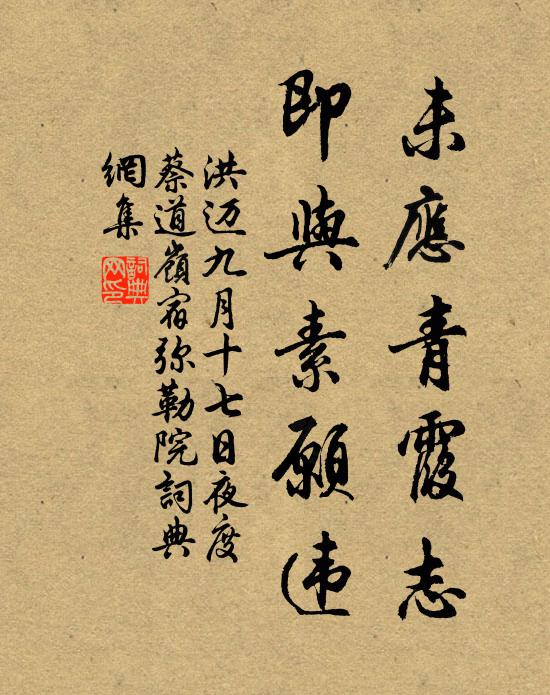 未應青霞志
即與素願违
洪迈九月十七日夜度
蔡道嶺宿弥勒院詞典
網集
詞典網印